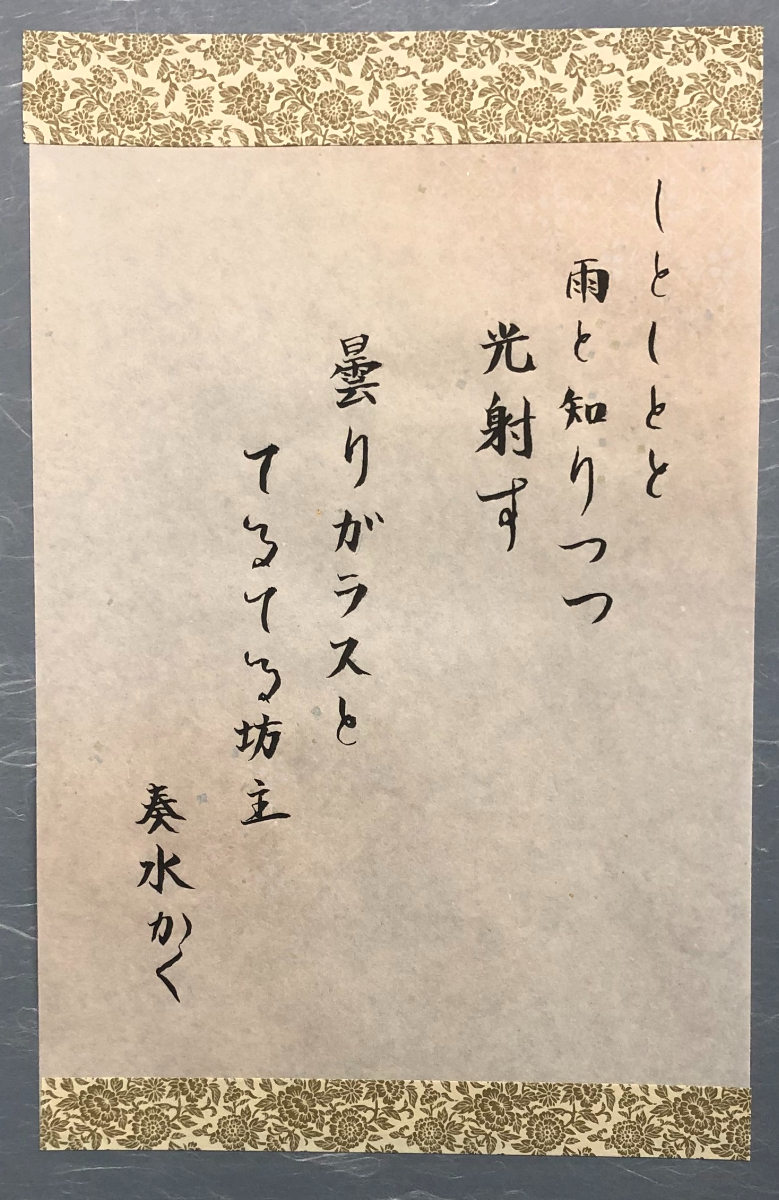 しとしとと
雨と知りつつ
光射す
曇りガラスと
てるてる坊主
奏水かく